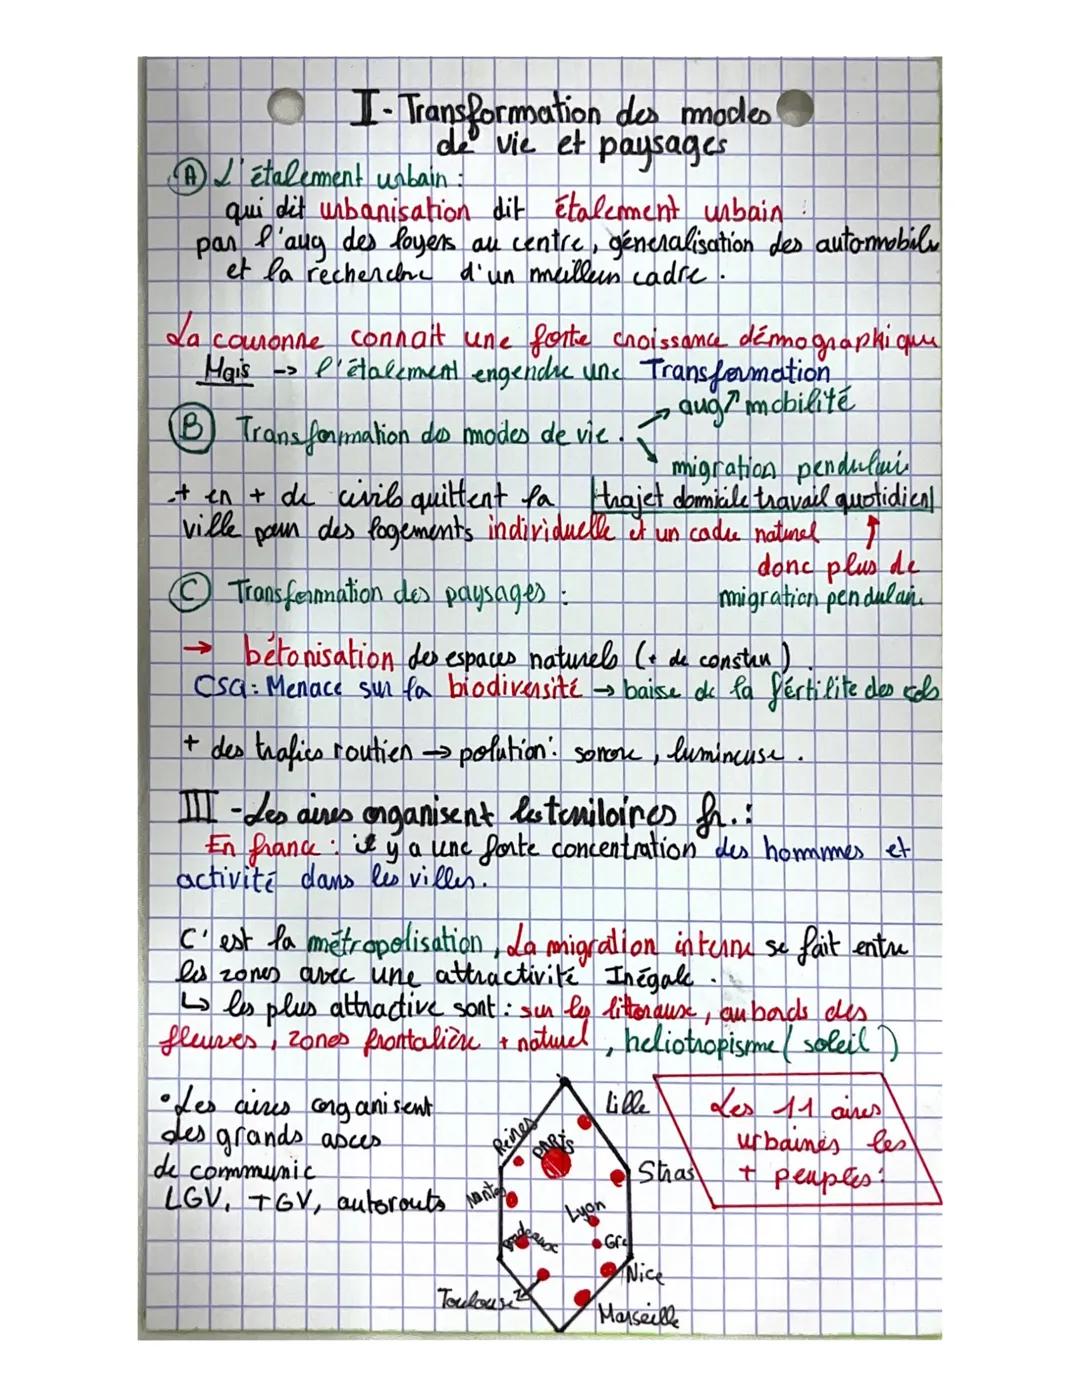 I - Transformation des modes
de vie et paysages
A L'étalement urbain :
qui dit urbanisation dit étalement urbain :
par l'aug des foyers au centre, généralisation des automobile
et la recherche d'un meilleur cadre .
La couronne connait une forte croissance démographique
Mais -> l'étalement engendre une Transformation
→ aug↗ mobilité
B Transformation des modes de vie .
migration pendulaire
+ en + de civils quittent la trajet domicile travail quotidien
ville pour des logements individuelle et un cadre naturel
donc plus de
C Transformation des paysages :
migration pendulaire
→ bétonisation des espaces naturels (+ de constru) .
Csq : Menace sur la biodiversité → baisse de la fértilite des sols
+ des trafics routier → polution : sonore , lumineuse .
III - Les aires organisent les territoires fr. :
En france : il y a une forte concentration des hommes et
activité dans les villes .
C'est la métropolisation , La migration interne se fait entre
les zones avec une attractivité Inégale .
↳ les plus attractive sont : sur les littoraux , au bords des
fleuves , zones frontalière + naturel , heliotropisme ( soleil )
• Les aires organisent
des grands axes
de communic
LGV, TGV, autorouts
Lille
Reines
PARIS
Stras
Nantes
Lyon
Bordeaux
Gre
Nice
Toulouse
Marseille
Les 11 aires
urbaines les
+ peuples :